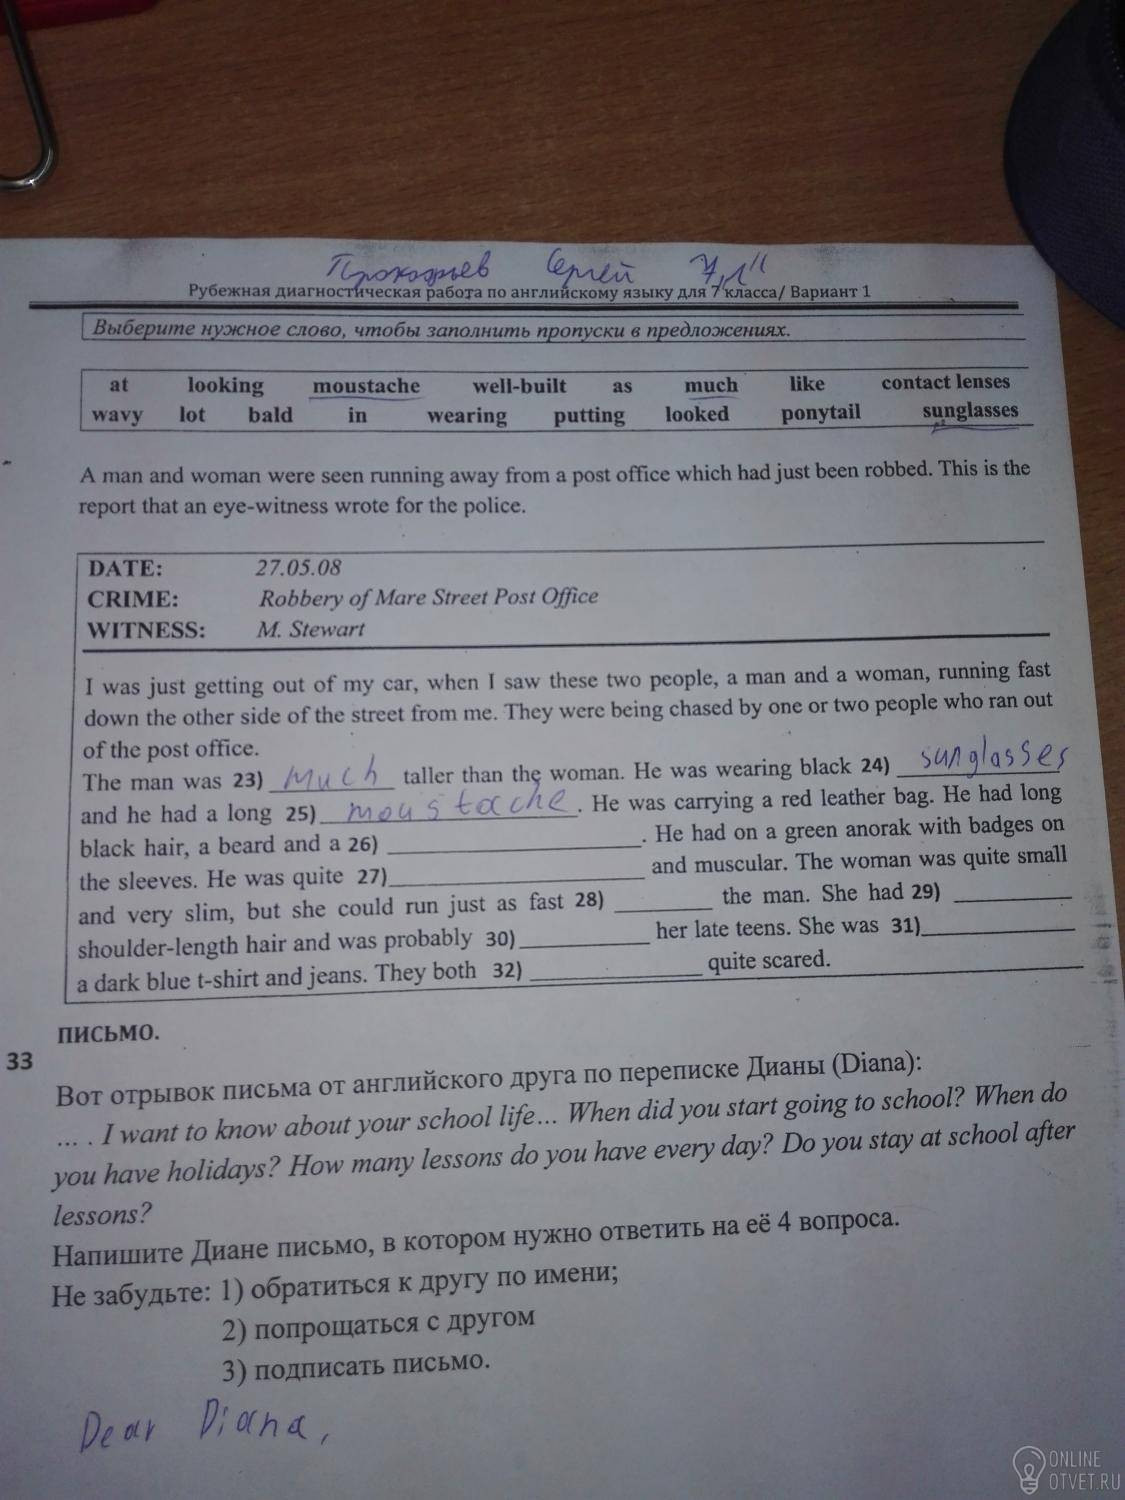 Прокофьев Сергей 7"Л"
Рубежная диагностическая работа по английскому языку для 7 класса/ Вариант 1
Выберите нужное слово, чтобы заполнить пропуски в предложениях.
at looking moustache well-built as much like contact lenses
wavy lot bald in wearing putting looked ponytail sunglasses
A man and woman were seen running away from a post office which had just been robbed. This is the
report that an eye-witness wrote for the police.
DATE: 27.05.08
CRIME: Robbery of Mare Street Post Office
WITNESS: M. Stewart
I was just getting out of my car, when I saw these two people, a man and a woman, running fast
down the other side of the street from me. They were being chased by one or two people who ran out
of the post office.
The man was 23) much taller than the woman. He was wearing black 24) sunglasses
and he had a long 25) moustache. He was carrying a red leather bag. He had long
black hair, a beard and a 26) ____________. He had on a green anorak with badges on
the sleeves. He was quite 27)____________ and muscular. The woman was quite small
and very slim, but she could run just as fast 28) ______ the man. She had 29) ______
shoulder-length hair and was probably 30)________ her late teens. She was 31)________
a dark blue t-shirt and jeans. They both 32) __________ quite scared.
ПИСЬМО.
33
Вот отрывок письма от английского друга по переписке Дианы (Diana):
... . I want to know about your school life... When did you start going to school? When do
you have holidays? How many lessons do you have every day? Do you stay at school after
lessons?
Напишите Диане письмо, в котором нужно ответить на её 4 вопроса.
Не забудьте: 1) обратиться к другу по имени;
2) попрощаться с другом
3) подписать письмо.
Dear Diana,
ONLINE
OTVET.RU